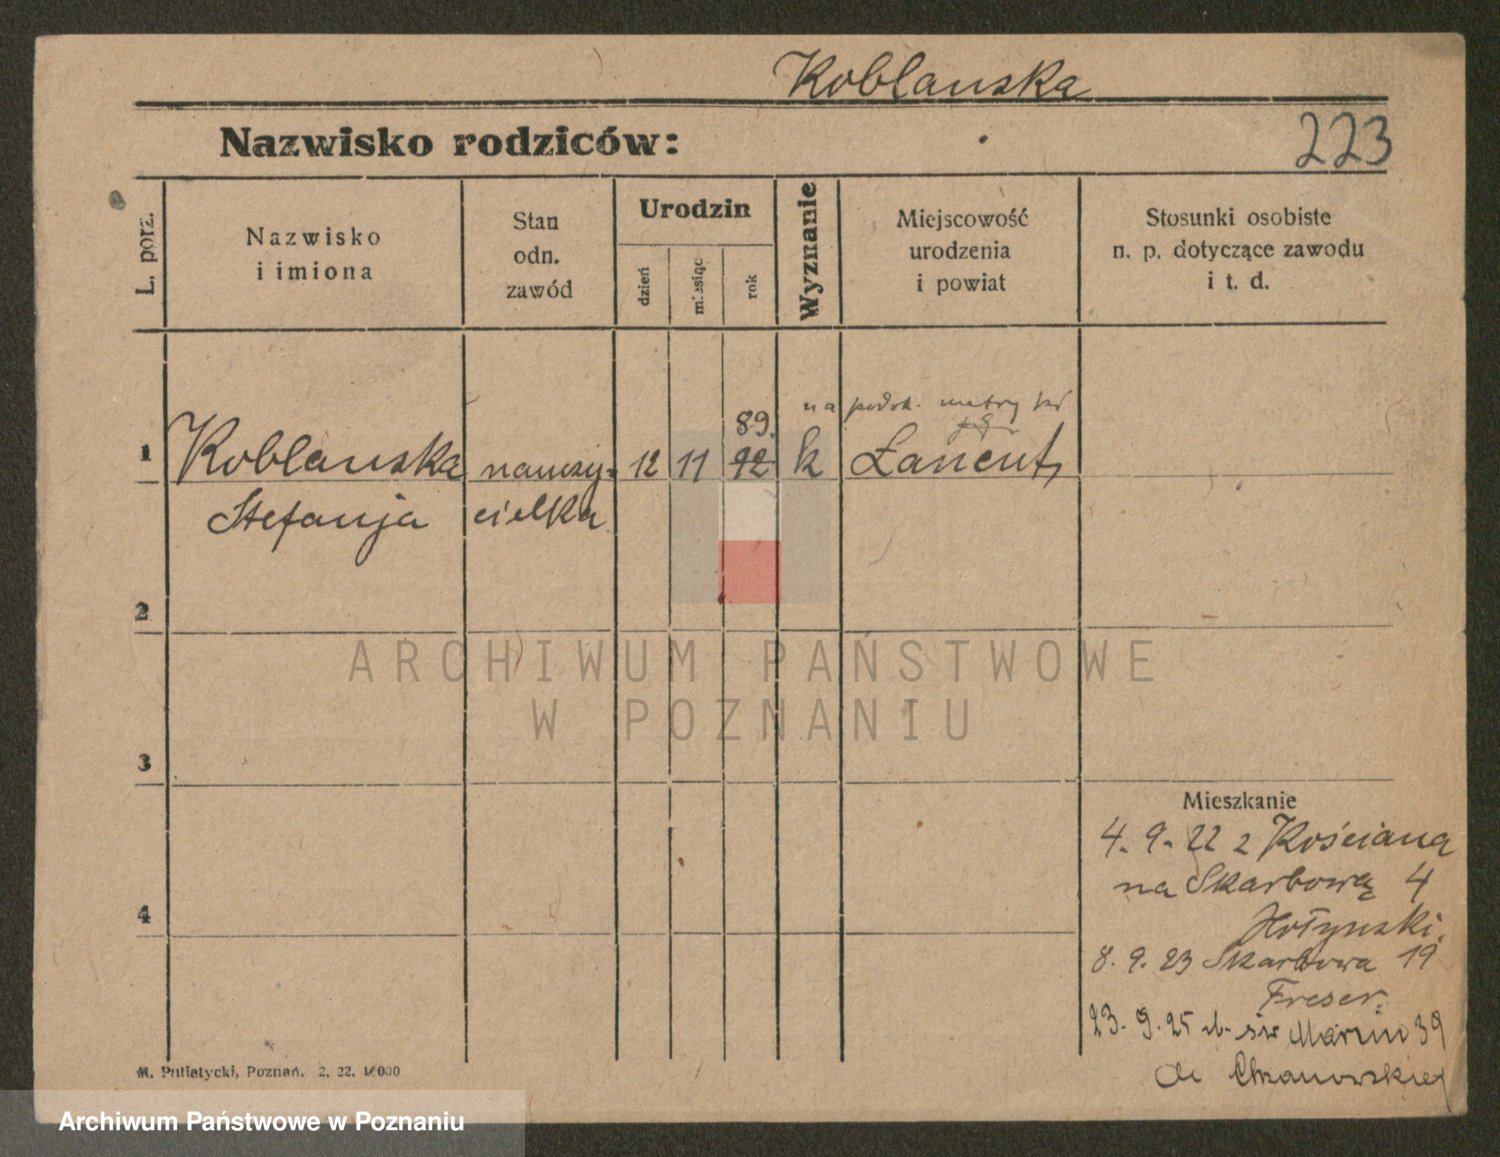 Koblanska
Nazwisko rodziców:
223
L. porz.
Nazwisko
i imiona
Stan
odn.
zawód
Urodzin
dzień
miesiąc
rok
Wyznanie
Miejscowość
urodzenia
i powiat
Stosunki osobiste
n. p. dotyczące zawodu
i t. d.
na podst. metry
89.
1 Koblanska nauczy= 12 11 92 k Łańcut,
Stefanja cielka
2
ARCHIWUM PAŃSTWOWE
W POZNANIU
3
Mieszkanie
4. 9. 22 z Kościana
na Skarbową 4
4
Hołynski.
8. 9. 23 Skarbowa 19
Freser.
23. 9. 25 św Marcin 39
Chzanowskiej
M. Putiatycki, Poznań. 2. 22. 10000
Archiwum Państwowe w Poznaniu